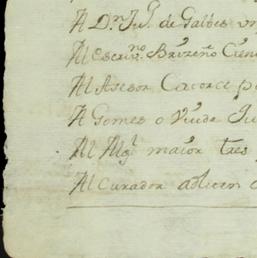 A Dn. Juo. de Galbes un
Al Escrivno. Brizeño Cien
Al Asesor Catorce p
A Gomes o Viuda Ju
Al Algl. maior tres
Al Curador ad litem